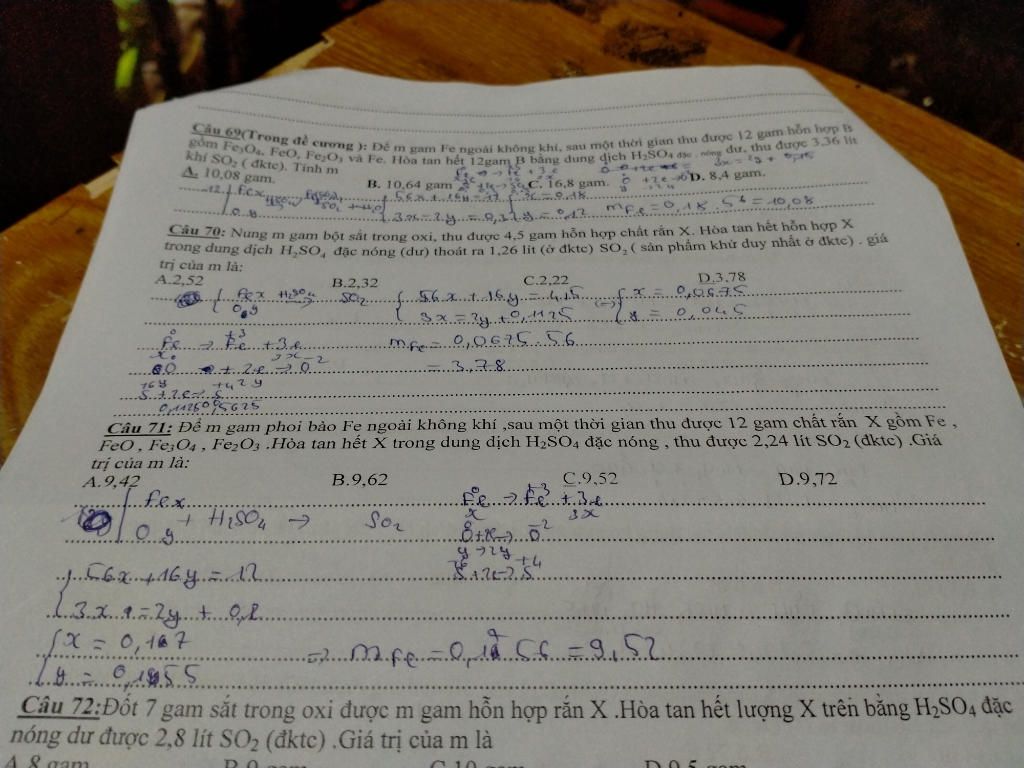 Câu 69(Trong đề cương ): Để m gam Fe ngoài không khí, sau một thời gian thu được 12 gam hỗn hợp B
gồm Fe₃O₄, FeO, Fe₂O₃ và Fe. Hòa tan hết 12gam B bằng dung dịch H₂SO₄ đặc, nóng dư, thu được 3,36 lít
khí SO₂ ( đktc). Tính m
A. 10,08 gam. B. 10,64 gam C. 16,8 gam. D. 8,4 gam.
56x + 16y = 12
3x = 2y + 0,3 y = 0,12 mFe = 0,18.56 = 10,08
Câu 70: Nung m gam bột sắt trong oxi, thu được 4,5 gam hỗn hợp chất rắn X. Hòa tan hết hỗn hợp X
trong dung dịch H₂SO₄ đặc nóng (dư) thoát ra 1,26 lít (ở đktc) SO₂ ( sản phẩm khử duy nhất ở đktc) . giá
trị của m là:
A.2,52 B.2,32 C.2,22 D.3,78
Fe x H₂SO₄ SO₂ 56x + 16y = 4,5 x = 0,0675
O y 3x = 2y + 0,1125 y = 0,045
Fe → Fe + 3e mFe = 0,0675.56
O + 2e → O = 3,78
S + 2e → S
Câu 71: Để m gam phoi bào Fe ngoài không khí ,sau một thời gian thu được 12 gam chất rắn X gồm Fe ,
FeO , Fe₃O₄ , Fe₂O₃ .Hòa tan hết X trong dung dịch H₂SO₄ đặc nóng , thu được 2,24 lít SO₂ (đktc) .Giá
trị của m là:
A.9,42 B.9,62 C.9,52 D.9,72
Fe x Fe → Fe + 3e
O y + H₂SO₄ → SO₂ x 3x
y → 2y
56x + 16y = 12 S + 2e → S
3x = 2y + 0,2
x = 0,17 ⇒ mFe = 0,17 56 = 9,52
Câu 72:Đốt 7 gam sắt trong oxi được m gam hỗn hợp rắn X .Hòa tan hết lượng X trên bằng H₂SO₄ đặc
nóng dư được 2,8 lít SO₂ (đktc) .Giá trị của m là
A.8 gam B.9 gam C.10 gam D.9,5 gam